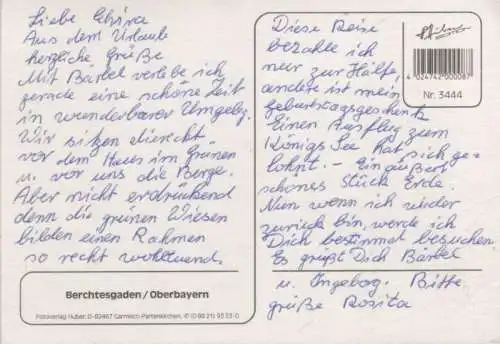 Liebe
Aus dem Urlaub
herzliche Grüße
Mit Bärbel verlebe ich
gerade eine schöne Zeit
in wunderbarer Umgebg.
Wir sitzen direckt
vor dem Haus im Grünen
u. vor uns die Berge.
Aber nicht erdrückend
denn die grünen Wiesen
bilden einen Rahmen
so recht wohltuend.
Berchtesgaden/Oberbayern
Fotoverlag Huber, D-82467 Garmisch-Partenkirchen, © (0 88 21) 93 33-0
Diese Reise
bezahle ich
nur zur Hälfte,
andere ist mein
Geburtstagsgeschenk
Einen Ausflug zum
Königs See hat sich ge-
lohnt. – Ein äußerst
schönes Stück Erde.
Nun wenn ich wieder
zurück bin, werde ich
Dich bestimmt besuchen.
Es grüßt Dich Bärbel
u. Ingeborg. Bitte
grüße Rosita
Huber
4 024742 000087
Nr. 3444